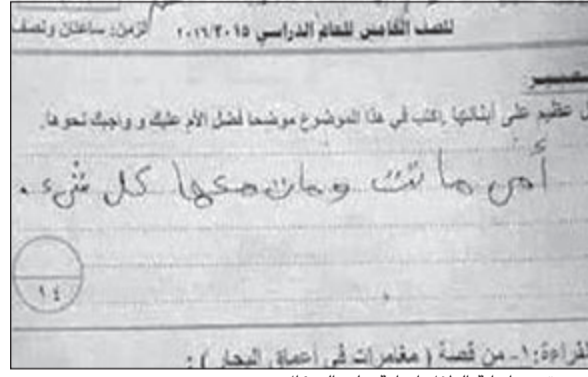 للصف الخامس للعام الدراسي ٢٠١٦/٢٠١٥ الزمن: ساعتان ونصف
عظيم على أبنائها .اكتب في هذا الموضوع موضحا فضل الأم عليك و واجبك نحوها.
أمى ماتت ومات معها كل شىء .
١٤
القراءة: ١- من قصة ( مغامرات فى أعماق البحار ) :